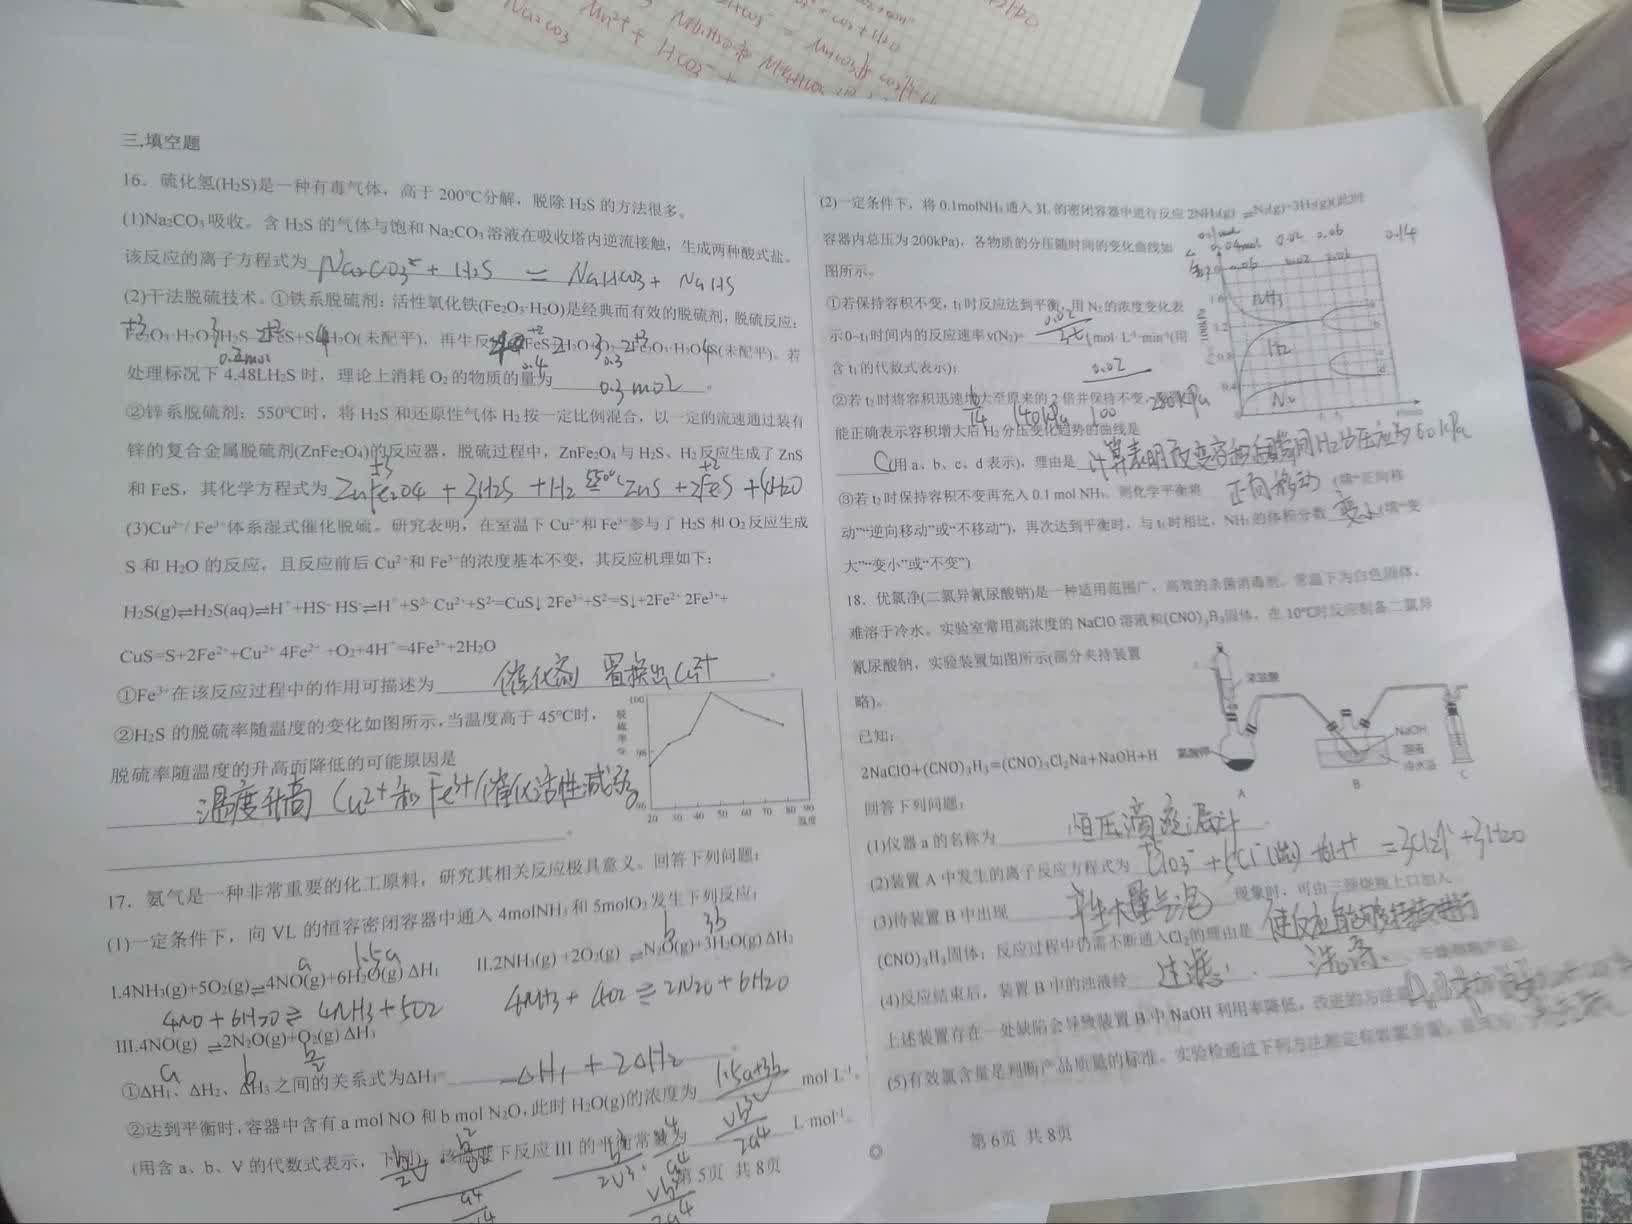 Na2CO3
Mn²⁺ + HCO3⁻ +
三.填空题
16. 硫化氢(H2S)是一种有毒气体，高于200℃分解，脱除H2S的方法很多。
(1)Na2CO3吸收。含H2S的气体与饱和Na2CO3溶液在吸收塔内逆流接触，生成两种酸式盐。
该反应的离子方程式为 Na2CO3 + H2S = NaHCO3 + NaHS
(2)干法脱硫技术。①铁系脱硫剂：活性氧化铁(Fe2O3·H2O)是经典而有效的脱硫剂，脱硫反应：
Fe2O3·H2O+H2S FeS+S+H2O(未配平)，再生反 FeS+H2O+O2 Fe2O3·H2O+S(未配平)。若
0.2mol 0.4 0.3
处理标况下4.48LH2S时，理论上消耗O2的物质的量为 0.3mol 。
②锌系脱硫剂：550℃时，将H2S和还原性气体H2按一定比例混合，以一定的流速通过装有
锌的复合金属脱硫剂(ZnFe2O4)的反应器，脱硫过程中，ZnFe2O4与H2S、H2反应生成了ZnS
和FeS，其化学方程式为 ZnFe2O4 + 3H2S + H2 550℃ ZnS + 2FeS + 4H2O
(3)Cu²⁺/ Fe³⁺体系湿式催化脱硫。研究表明，在室温下Cu²⁺和Fe³⁺参与了H2S和O2反应生成
S和H2O的反应，且反应前后Cu²⁺和Fe³⁺的浓度基本不变，其反应机理如下：
H2S(g)⇌H2S(aq)⇌H⁺+HS⁻ HS⁻⇌H⁺+S²⁻ Cu²⁺+S²⁻=CuS↓ 2Fe³⁺+S²⁻=S↓+2Fe²⁺ 2Fe³⁺+
CuS=S+2Fe²⁺+Cu²⁺ 4Fe²⁺+O2+4H⁺=4Fe³⁺+2H2O
①Fe³⁺在该反应过程中的作用可描述为 催化剂 置换出Cu²⁺ 。
②H2S的脱硫率随温度的变化如图所示，当温度高于45℃时，
脱硫率随温度的升高而降低的可能原因是
温度升高 Cu²⁺和Fe³⁺催化活性减弱 。
脱硫率%
100
98
96
20 30 40 50 60 70 80 90
温度
17. 氨气是一种非常重要的化工原料，研究其相关反应极具意义。回答下列问题：
(1)一定条件下，向VL的恒容密闭容器中通入4molNH3和5molO2发生下列反应：
a 1.5a b 3b
I.4NH3(g)+5O2(g)⇌4NO(g)+6H2O(g) ΔH1 II.2NH3(g)+2O2(g) ⇌N2O(g)+3H2O(g) ΔH2
4NO + 6H2O ⇌ 4NH3 + 5O2 4NH3 + 4O2 ⇌ 2N2O + 6H2O
III.4NO(g) ⇌2N2O(g)+O2(g) ΔH3
a b b/2
①ΔH1、ΔH2、ΔH3之间的关系式为ΔH3= -ΔH1 + 2ΔH2 。
②达到平衡时，容器中含有a mol NO和b mol N2O，此时H2O(g)的浓度为 1.5a+3b/V mol·L⁻¹
(用含a、b、V的代数式表示，下同)，该温度下反应III的平衡常数为 Vb³/2a⁴ L·mol⁻¹。
第5页 共8页
(2)一定条件下，将0.1molNH3通入3L的密闭容器中进行反应2NH3(g) ⇌N2(g)+3H2(g)(此时
容器内总压为200kPa)，各物质的分压随时间的变化曲线如
图所示。
0.1mol
0.04mol 0.02 0.06 0.14
NH3
H2
N2
①若保持容积不变，t1时反应达到平衡，用N2的浓度变化表
示0~t1时间内的反应速率v(N2)= 0.02/3t1 mol·L⁻¹·min⁻¹(用
含t1的代数式表示)；
0.02
②若t2时将容积迅速增大至原来的2倍并保持不变，
能正确表示容积增大后H2分压变化趋势的曲线是
C (用a、b、c、d表示)，理由是 计算表明改变容积瞬间H2分压应为60kPa
③若t2时保持容积不变再充入0.1 mol NH3，则化学平衡将 正向移动 (填“正向移
动”“逆向移动”或“不移动”)，再次达到平衡时，与t1时相比，NH3的体积分数 变小 (填“变
大”“变小”或“不变”)
18. 优氯净(二氯异氰尿酸钠)是一种适用范围广，高效的杀菌消毒剂。常温下为白色固体，
难溶于冷水。实验室常用高浓度的NaClO溶液和(CNO)3H3固体，在10℃时反应制备二氯异
氰尿酸钠，实验装置如图所示(部分夹持装置
略)。
已知：
2NaClO+(CNO)3H3=(CNO)3Cl2Na+NaOH+H
浓盐酸
氯酸钾
NaOH
溶液
冰水浴
A B C
回答下列问题：
(1)仪器a的名称为 恒压滴液漏斗
(2)装置A中发生的离子反应方程式为 ClO3⁻ + 5Cl⁻(浓) + 6H⁺ = 3Cl2↑ + 3H2O
(3)待装置B中出现 产生大量气泡 现象时，可由三颈烧瓶上口加入
(CNO)3H3固体；反应过程中仍需不断通入Cl2的理由是
(4)反应结束后，装置B中的浊液经 过滤 、 洗涤 、干燥得粗产品。
上述装置存在一处缺陷会导致装置B中NaOH利用率降低，改进的方法是
(5)有效氯含量是判断产品质量的标准。实验检通过下列方法测定有效氯含量，
第6页 共8页